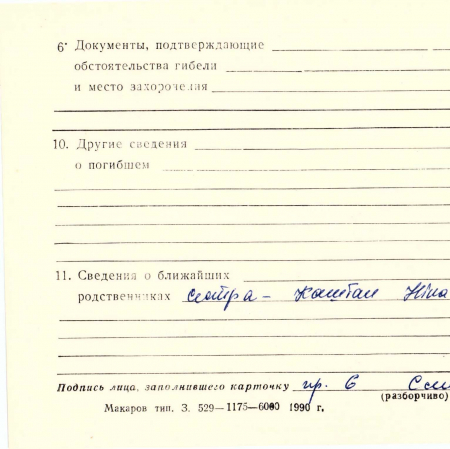 6. Документы, подтверждающие
обстоятельства гибели
и место захоронения
10. Другие сведения
о погибшем
11. Сведения о ближайших
родственниках сестра – Каштан Ніна
Подпись лица, заполнившего карточку пр. 6
(разборчиво)
Макаров тип. З. 529—1175—6000 1990 г.